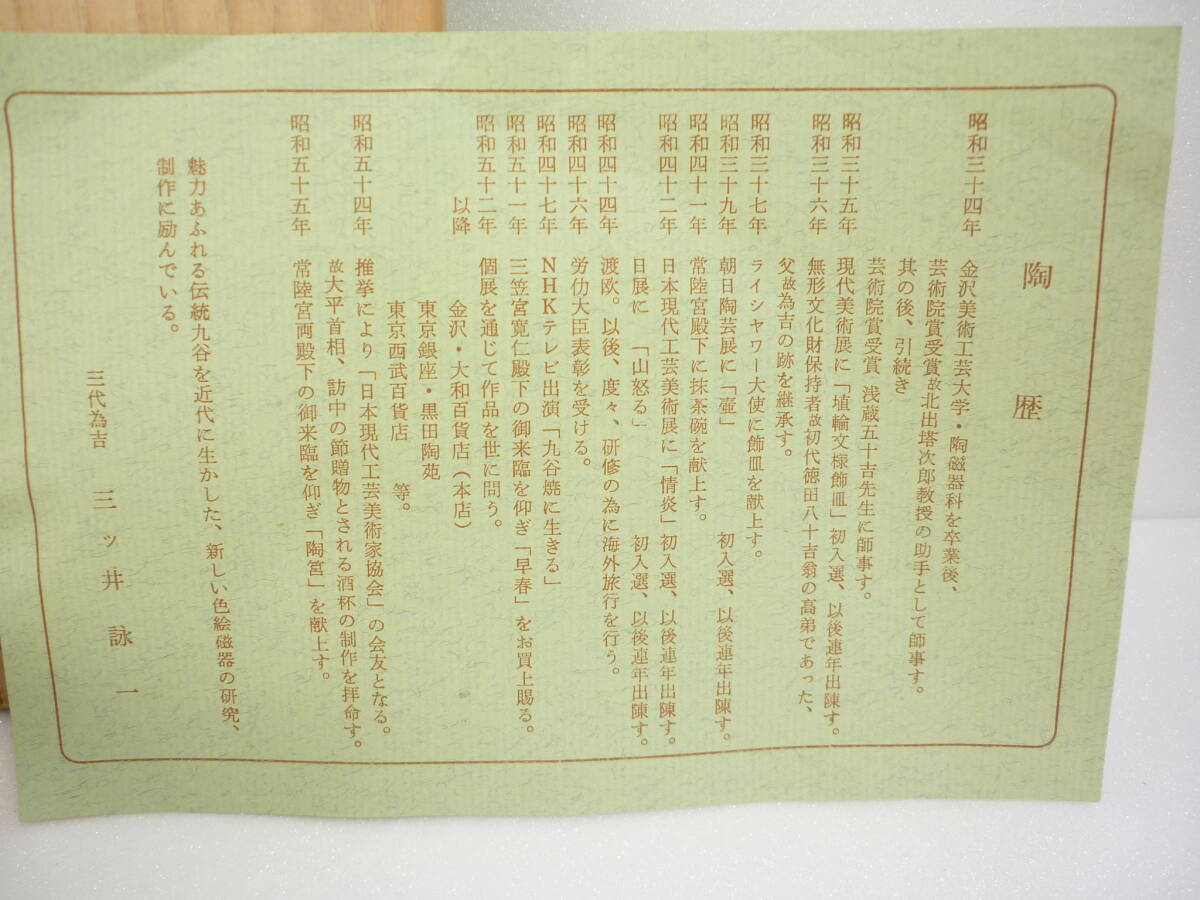 陶歴
昭和三十四年 金沢美術工芸大学・陶磁器科を卒業後、
芸術院賞受賞故北出塔次郎教授の助手として師事す。
其の後、引続き
芸術院賞受賞 浅蔵五十吉先生に師事す。
昭和三十五年 現代美術展に「埴輪文様飾皿」初入選、以後連年出陳す。
昭和三十六年 無形文化財保持者故初代徳田八十吉翁の高弟であった、
父故為吉の跡を継承す。
昭和三十七年 ライシャワー大使に飾皿を献上す。
昭和三十九年 朝日陶芸展に「壷」 初入選、以後連年出陳す。
昭和四十一年 常陸宮殿下に抹茶碗を献上す。
昭和四十二年 日本現代工芸美術展に「情炎」初入選、以後連年出陳す。
日展に 「山怒る」 初入選、以後連年出陳す。
昭和四十四年 渡欧。以後、度々、研修の為に海外旅行を行う。
昭和四十六年 労仂大臣表彰を受ける。
昭和四十七年 NHKテレビ出演「九谷焼に生きる」
昭和五十一年 三笠宮寛仁殿下の御来臨を仰ぎ「早春」をお買上賜る。
昭和五十二年 個展を通じて作品を世に問う。
以降 金沢・大和百貨店(本店)
東京銀座・黒田陶苑
東京西武百貨店 等。
昭和五十四年 推挙により「日本現代工芸美術家協会」の会友となる。
故大平首相、訪中の節贈物とされる酒杯の制作を拝命す。
昭和五十五年 常陸宮両殿下の御来臨を仰ぎ「陶筥」を献上す。
魅力あふれる伝統九谷を近代に生かした、新しい色絵磁器の研究、
制作に励んでいる。
三代為吉 三ッ井詠一